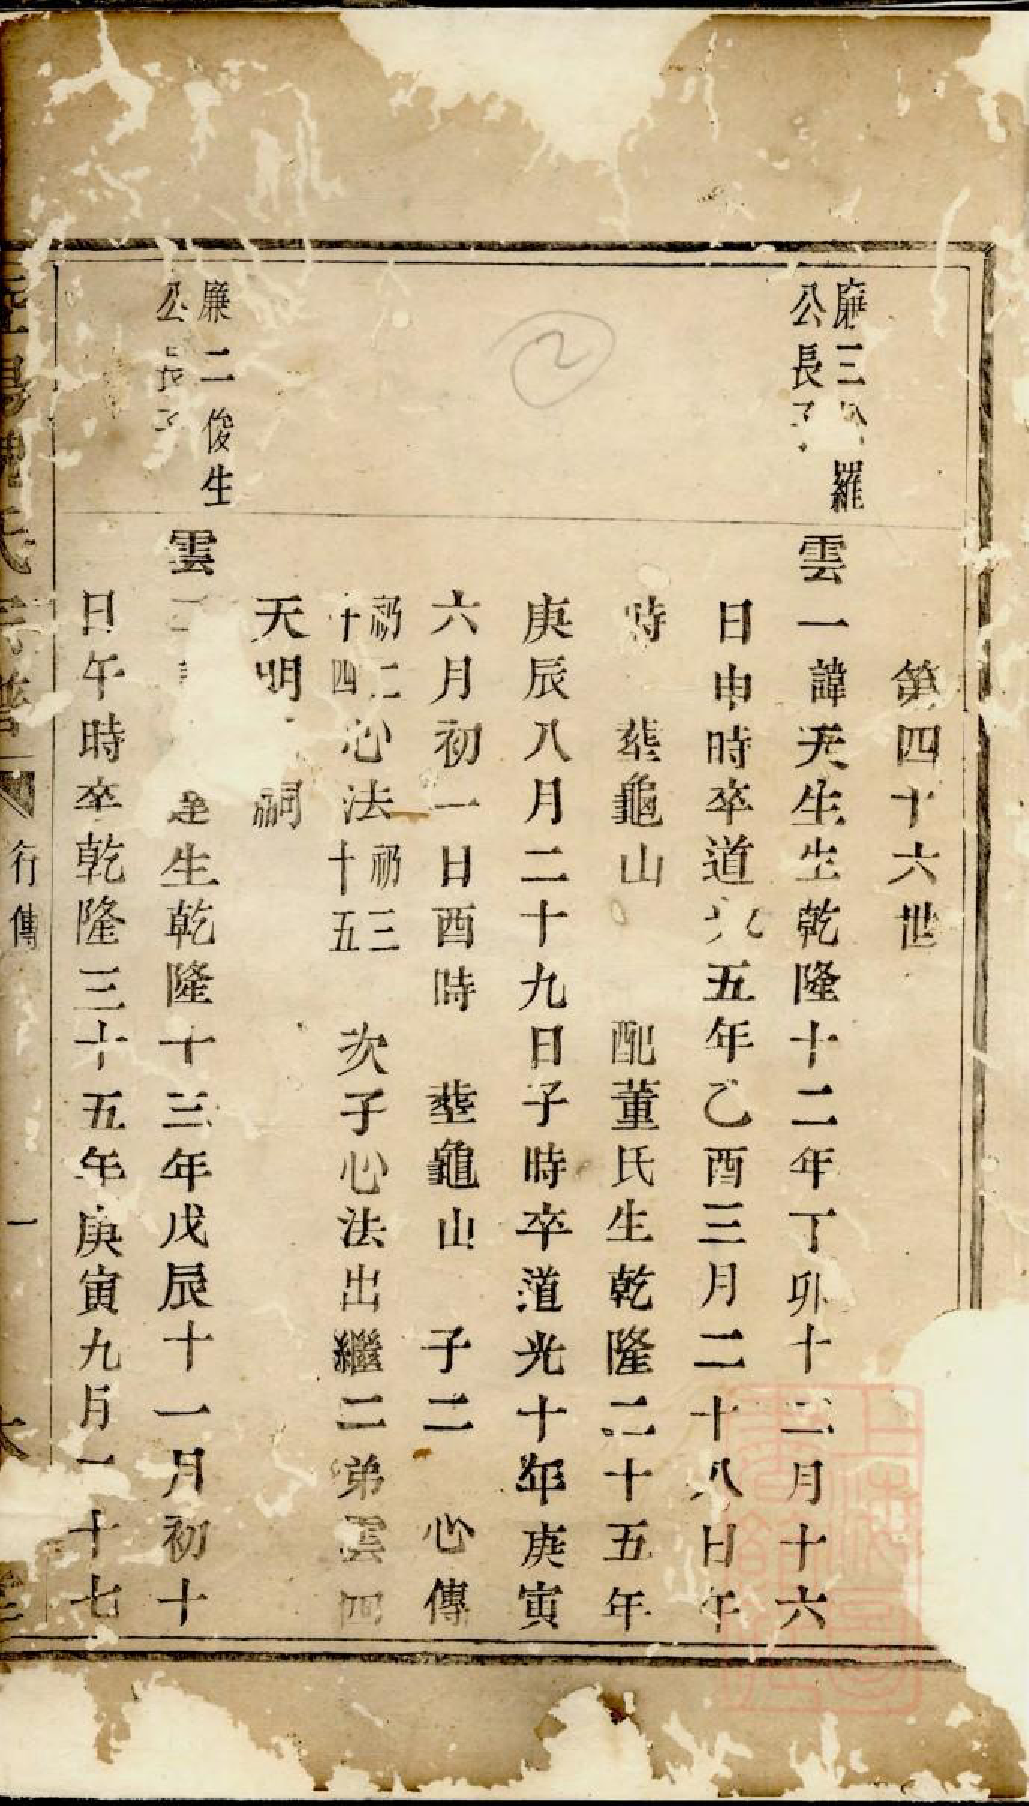 第四十六世
廉三羅
公長子
雲一諱天生生乾隆十二年丁卯十二月十六
日申時卒道光五年乙酉三月二十八日午
時 塟龜山 配董氏生乾隆二十五年
庚辰八月二十九日子時卒道光十年庚寅
六月初一日酉時 塟龜山 子二 心傳
礽二十四心法礽三十五 次子心法出繼二弟雲四
天明 嗣
廉二俊生
公長子
雲 達生乾隆十三年戊辰十一月初十
日午時卒乾隆三十五年庚寅九月一十七
氏宗譜 行傳 一